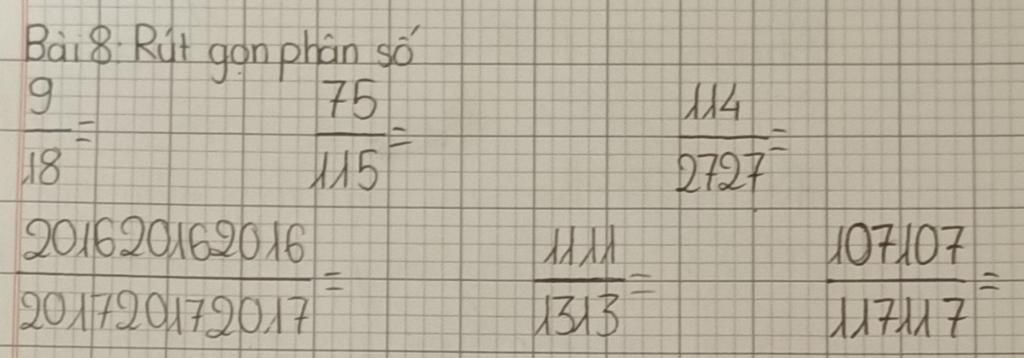 Bài 8: Rút gọn phân số
9/18 = 75/115 = 114/2727 =
201620162016/201720172017 = 1111/1313 = 107107/117117 =